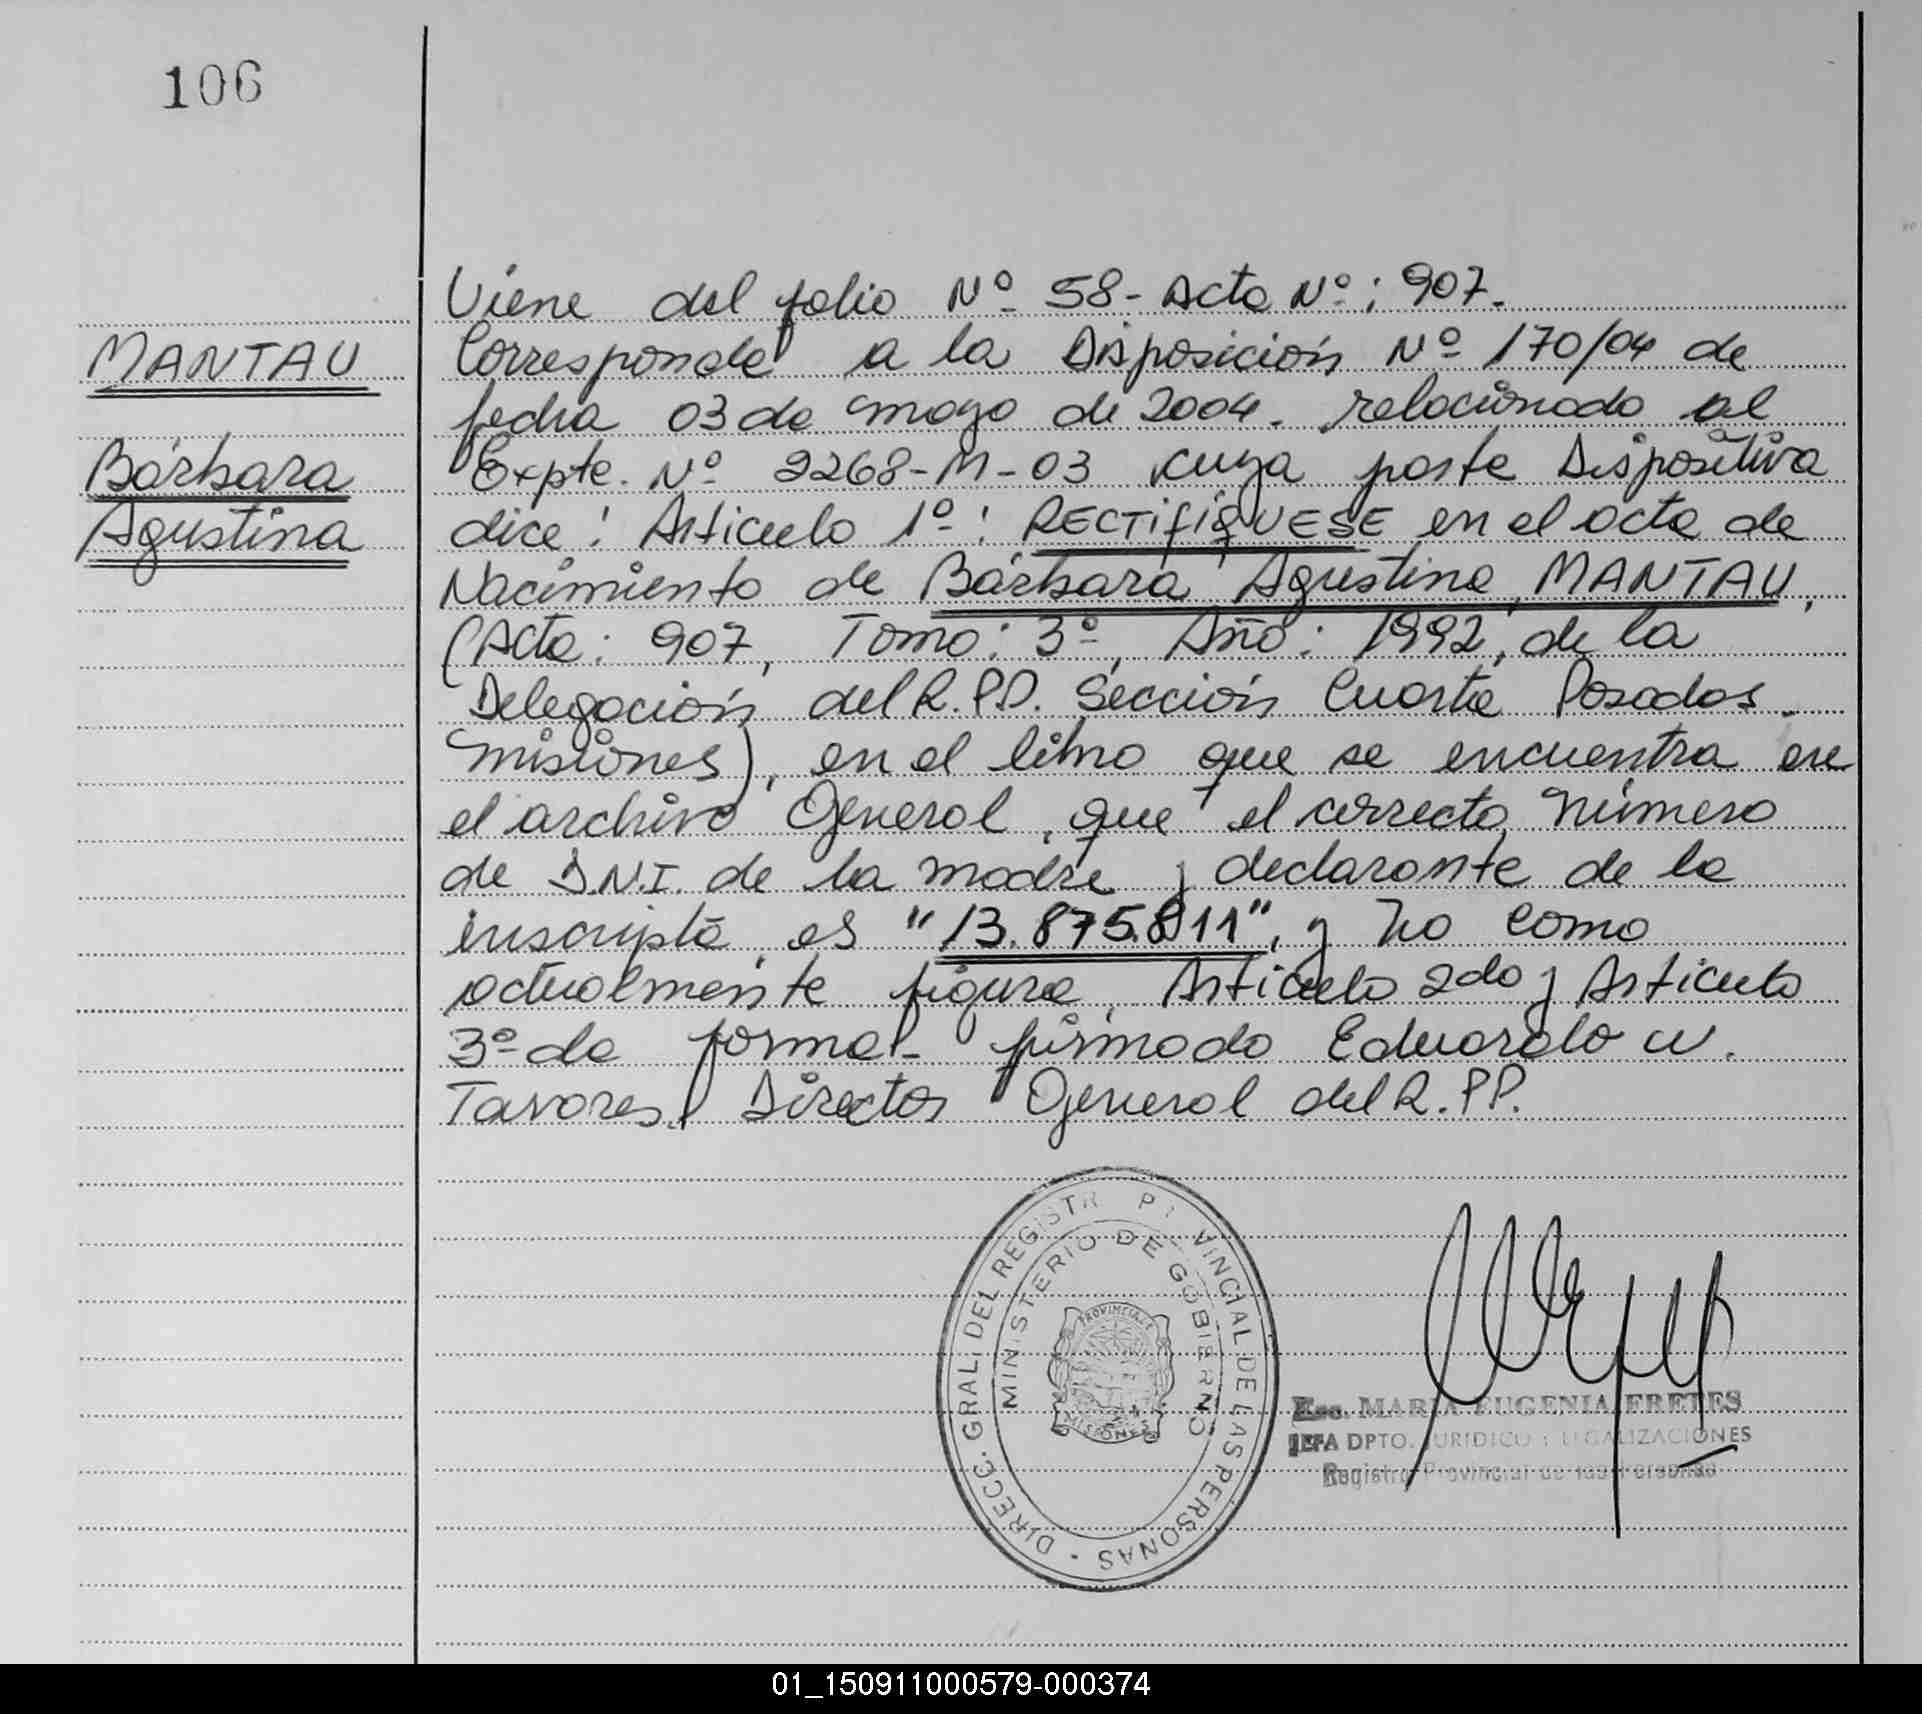 106
MANTAU
Bárbara
Agustina
Viene del folio Nº 58- Acta Nº: 907.
Corresponde a la Disposición Nº 170/04 de
fecha 03 de mayo de 2004. relacionado al
Expte. Nº 2268-M-03 cuya parte Dispositiva
dice: Articulo 1º: RECTIFIQUESE en el acta de
Nacimiento de Bárbara Agustina, MANTAU,
(Acta: 907, Tomo: 3º, Año: 1992, de la
Delegación del R.P.P. Sección Cuarta Posadas-
Misiones), en el libro que se encuentra en
el archivo General, que el correcto número
de D.N.I. de la madre y declarante de la
inscripta, es "13.875.811", y no como
actualmente figura, Articulo 2do y Articulo
3º de forma- firmado Eduardo W.
Tavares. Director General del R.P.P.
DIRECC. GRAL. DEL REGISTR PR VINCIAL DE LAS PERSONAS -
MINISTERIO DE GOBIERNO
PROVINCIA DE
MISIONES
Esc. MARIA EUGENIA FRETES
JEFA DPTO. JURIDICO Y LEGALIZACIONES
Registro Provincial de las Personas
01_150911000579-000374